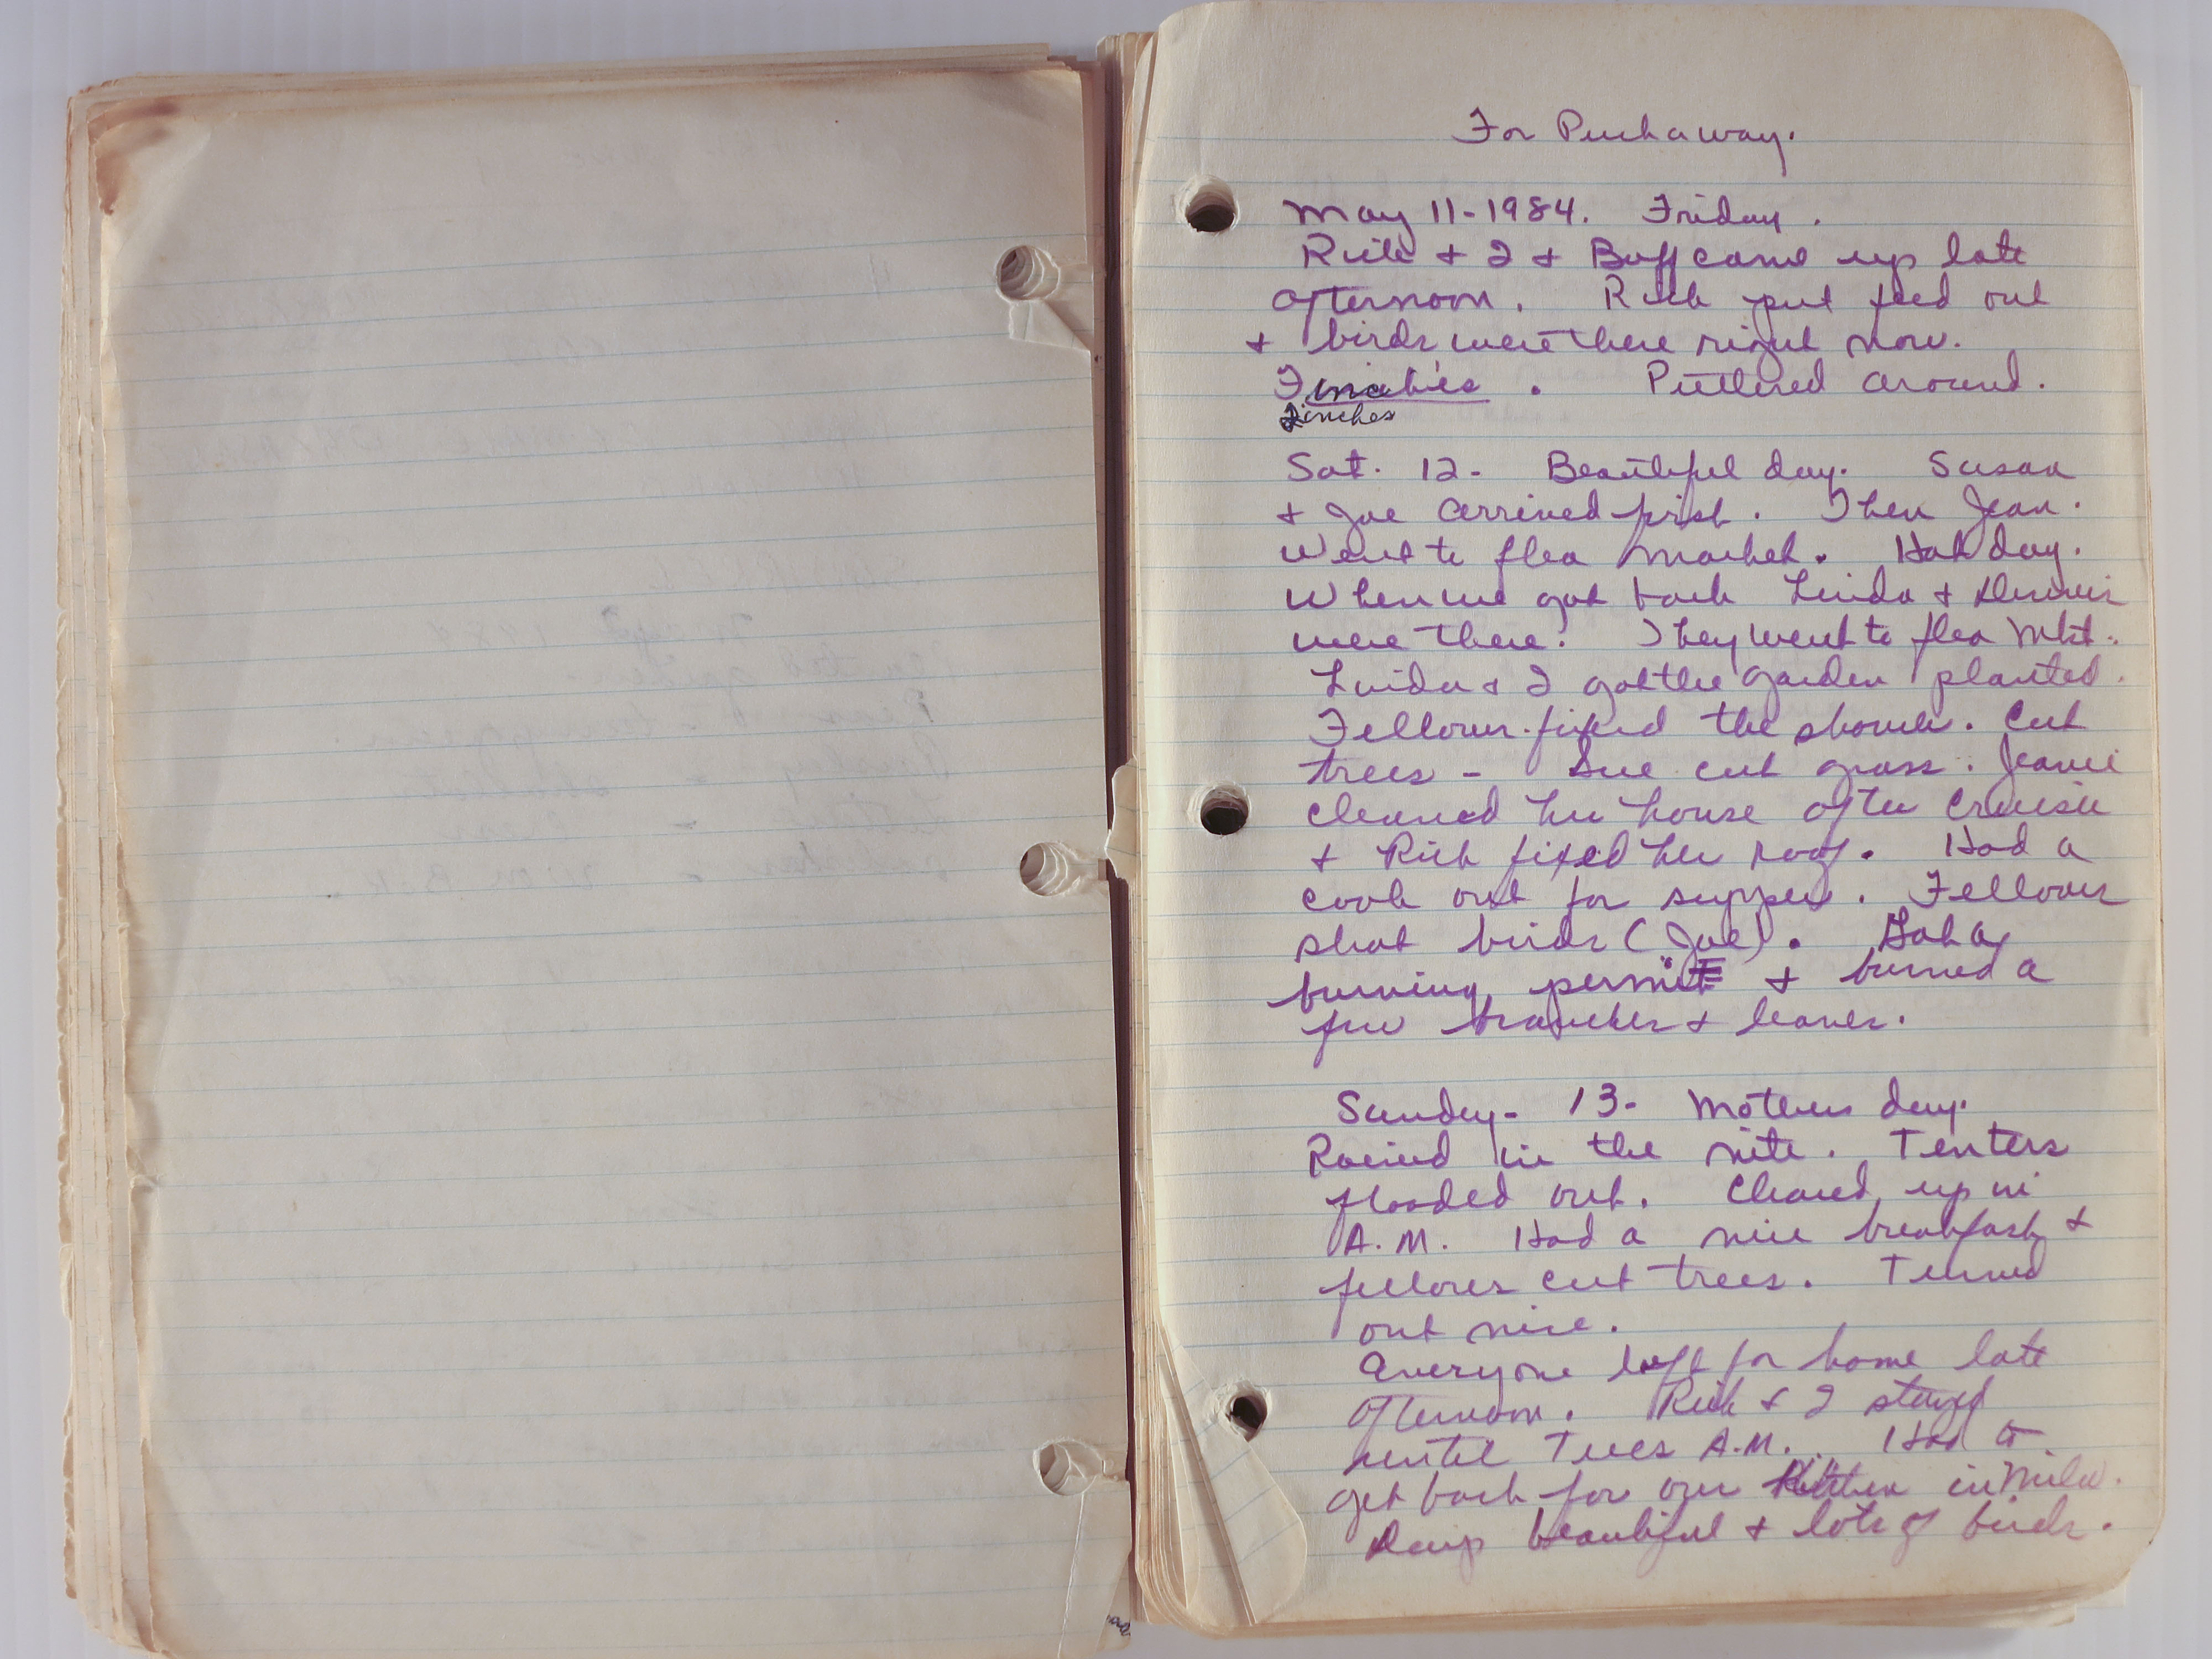 For Puckaway.
May 11-1984. Friday.
Rich + I + Buff came up late
afternoon. Rich put feed out
+ birds were there right now.
Finchies. Puttered around.
Finches
Sat. 12- Beautiful day. Susan
+ Joe arrived first. Then Jean.
Went to flea market. Hot day.
When we got back Linda + Dennis
were there. They went to flea Mkt.
Linda + I got the garden planted.
Fellows fixed the shower. Cut
trees - Sue cut grass. Jeanie
cleaned her house after
+ Rich fixed her roof. Had a
cook out for supper. Fellows
shot birds (Joe). Got a
burning permit + burned a
few branches + leaves.
Sunday- 13- Mothers day.
Rained in the nite. Tenters
flooded out. Cleared up in
A.M. Had a nice breakfast +
fellows cut trees. Turned
out nice.
Everyone left for home late
afternoon. Rich + I stayed
until Tues A.M. Had to
get back for our Kitchen in Milw.
Days beautiful + lots of birds.